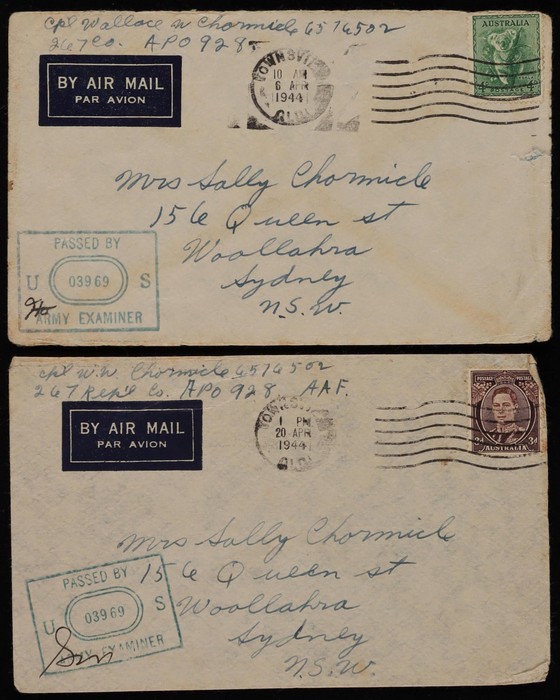 Cpl Wallace W Chormicle 6576502
267 Co. APO 928
AUSTRALIA
POSTAGE
BY AIR MAIL
PAR AVION
TOWNSVILLE
10 AM
6 APR
1944
QLD
Mrs Sally Chormicle
156 Queen st
Woollahra
Sydney
N.S.W.
PASSED BY
U 03969 S
ARMY EXAMINER
Cpl W.W. Chormicle 6576502
267 Repl Co. APO 928 AAF.
POSTAGE POSTAGE
3d 3d
AUSTRALIA
BY AIR MAIL
PAR AVION
TOWNSVILLE
1 PM
20 APR
1944
QLD
Mrs Sally Chormicle
156 Queen st
Woollahra
Sydney
N.S.W.
PASSED BY
U 03969 S
ARMY EXAMINER